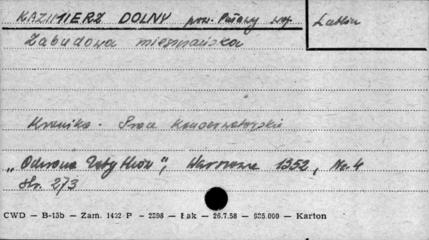 KAZIMIERZ DOLNY pow. Puławy woj. Lublin
Zabudowa mieszczańska
Kronika. Prace Konserwatorskie
„Ochrona Zabytków", Warszawa 1952, Nr. 4
Str. 273
CWD — B-13b — Zam. 1422 P — 2598 — Łak — 26.7.58 — 625.000 — Karton